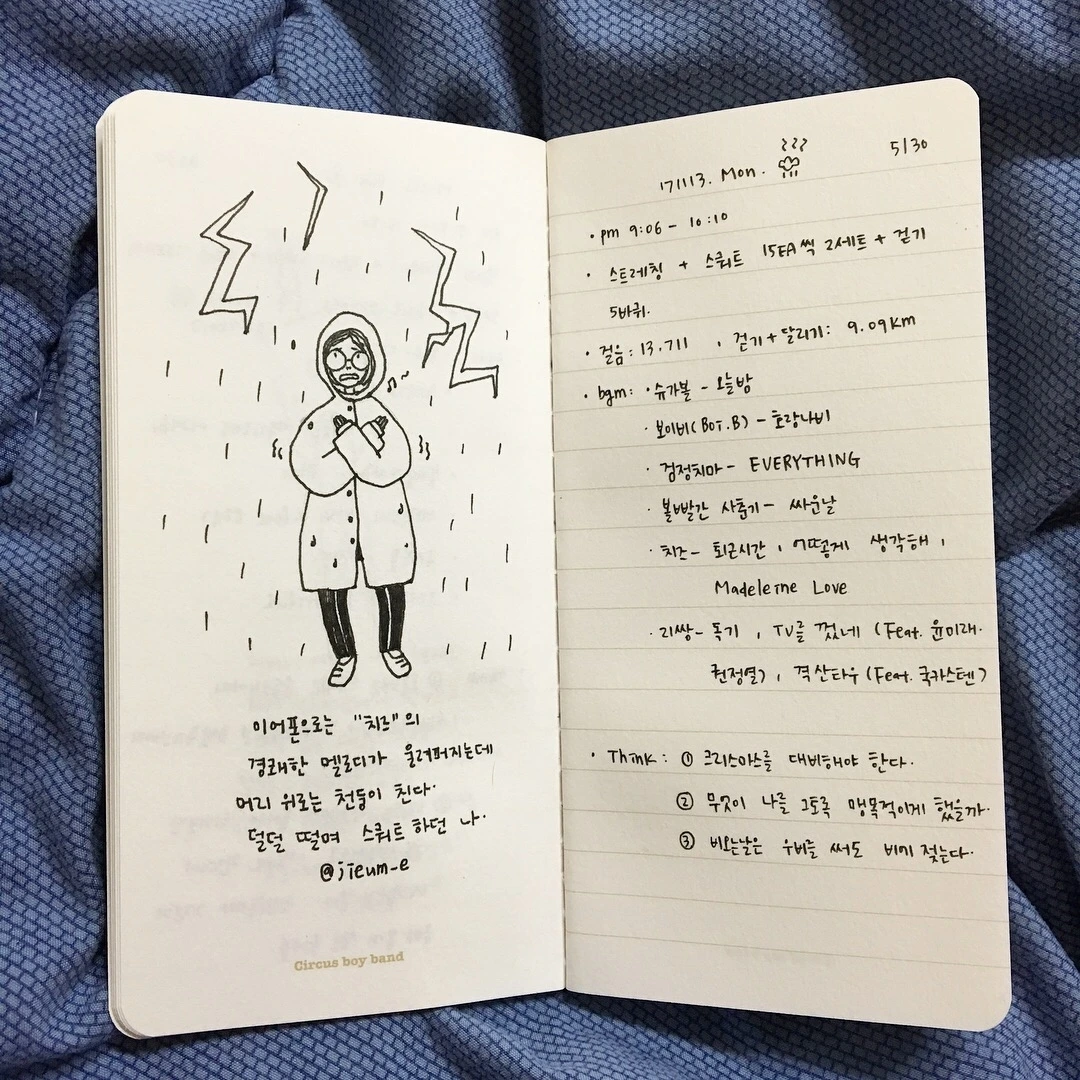 이어폰으로는 "치즈"의
경쾌한 멜로디가 울려퍼지는데
머리 위로는 천둥이 친다.
덜덜 떨며 스쿼트 하던 나.
@jieum_e
Circus boy band
171113. Mon.
5/30
· pm 9:06 - 10:10
· 스트레칭 + 스쿼트 15EA씩 2세트 + 걷기
5바퀴.
· 걸음: 13,711 , 걷기+달리기: 9.09km
· bgm: · 슈가볼 - 오늘밤
· 보이비(BOi.B) - 호랑나비
· 검정치마 - EVERYTHING
· 볼빨간 사춘기 - 싸운날
· 치즈 - 퇴근시간, 어떻게 생각해,
Madeleine Love
· 리쌍 - 독기, TV를 껐네 (Feat. 윤미래.
권정열), 격산타우 (Feat. 국카스텐)
· Think: ① 크리스마스를 대비해야 한다.
② 무엇이 나를 그토록 맹목적이게 했을까.
③ 비오는날은 우비를 써도 비에 젖는다.